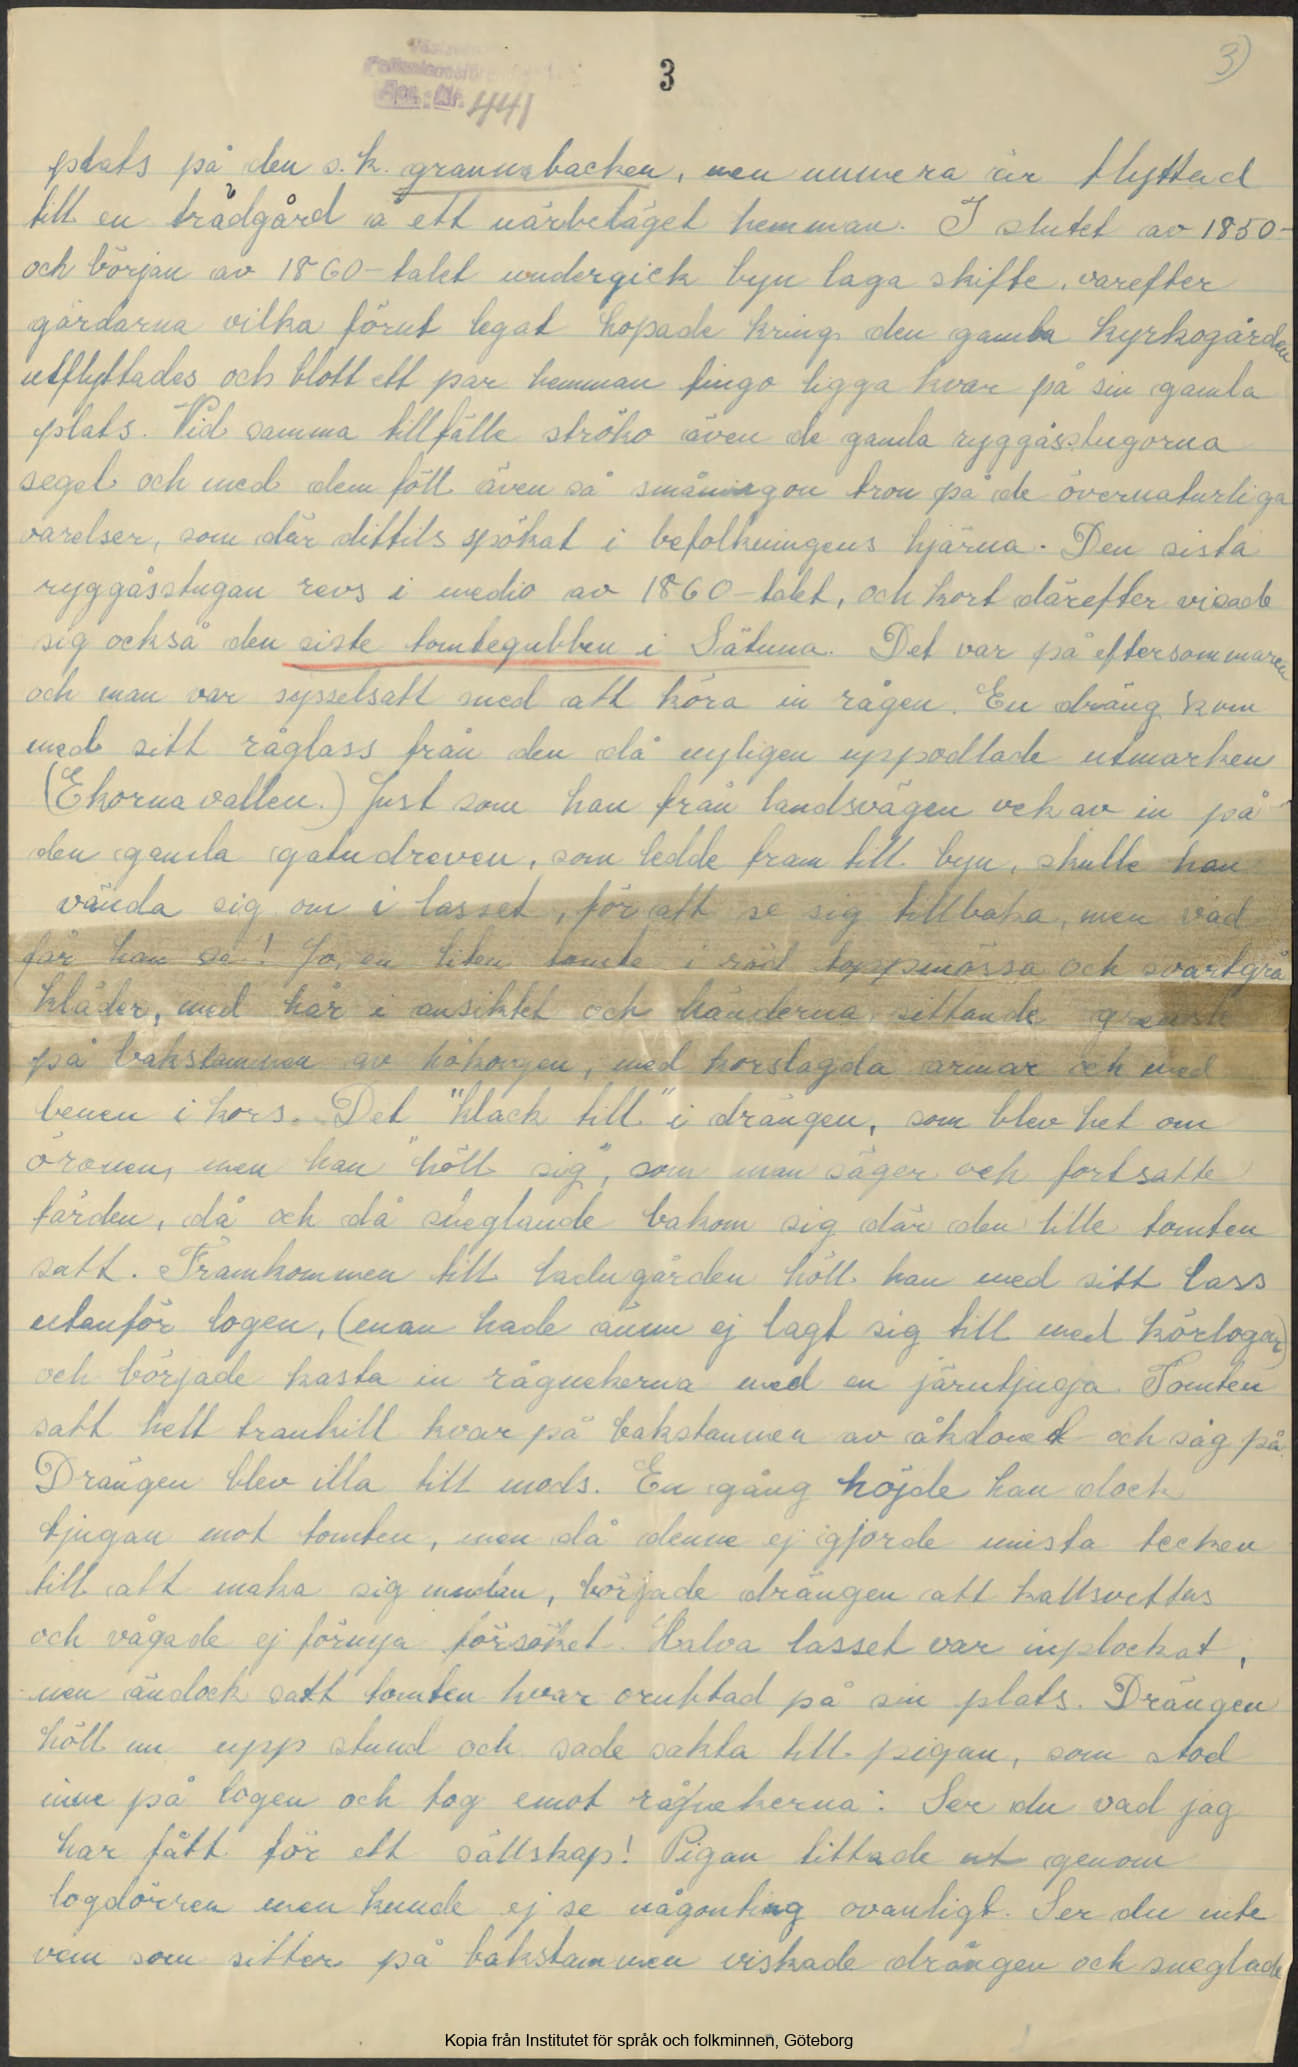 3
3)
Acc. Nr. 441
plats på den s.k. grannabacken, men numera är flyttad
till en trädgård å ett närbeläget hemman. I slutet av 1850-
och början av 1860-talet undergick byn laga skifte, varefter
gårdarna vilka förut legat hopade kring den gamla kyrkogården
utflyttades och blott ett par hemman fingo ligga kvar på sin gamla
plats. Vid samma tillfälle ströko även de gamla ryggåsstugorna
segel och med dem föll även så småningon tron på de övernaturliga
varelser, som där dittils spökat i befolkningens hjärna. Den sista
ryggåsstugan revs i medio av 1860-talet, och kort därefter visade
sig också den siste tomtegubben i Sätuna. Det var på eftersommaren
och man var sysselsatt med att köra in rågen. En dräng kom
med sitt råglass från den då nyligen uppodlade utmarken
(Ekornavallen.) Just som han från landsvägen vek av in på
den gamla gatudreven, som ledde fram till byn, skulle han
vända sig om i lasset, för att se sig tillbaka, men vad
får han se! Jo, en liten tomte i röd toppmössa och svartgrå
kläder, med hår i ansiktet och händerna sittande grensle
på bakstammen av hökorgen, med korslagda armar och med
benen i kors. Det "klack till" i drängen, som blev het om
öronen, men han "höll sig", som man säger och fortsatte
färden, då och då sneglande bakom sig där den lille tomten
satt. Framkommen till ladugården höll han med sitt lass
utanför logen, (man hade ännu ej lagt sig till med körlogar)
och började kasta in rågnekerna med en järntjuga. Tomten
satt helt trankilt kvar på bakstammen av åkdonet och såg på.
Drängen blev illa till mods. En gång höjde han dock
tjugan mot tomten, men då denne ej gjorde minsta tecken
till att maka sig undan, började drängen att kallsvettas
och vågade ej förnya försöket. Halva lasset var inplockat,
men ändock satt tomten kvar orubbad på sin plats. Drängen
höll nu upp stund och sade sakta till pigan, som stod
inne på logen och tog emot rågnekerna: Ser du vad jag
har fått för ett sällskap! Pigan tittade ut genom
logdörren men kunde ej se någonting ovanligt. Ser du inte
vem som sitter på bakstammen viskade drängen och sneglade
Kopia från Institutet för språk och folkminnen, Göteborg